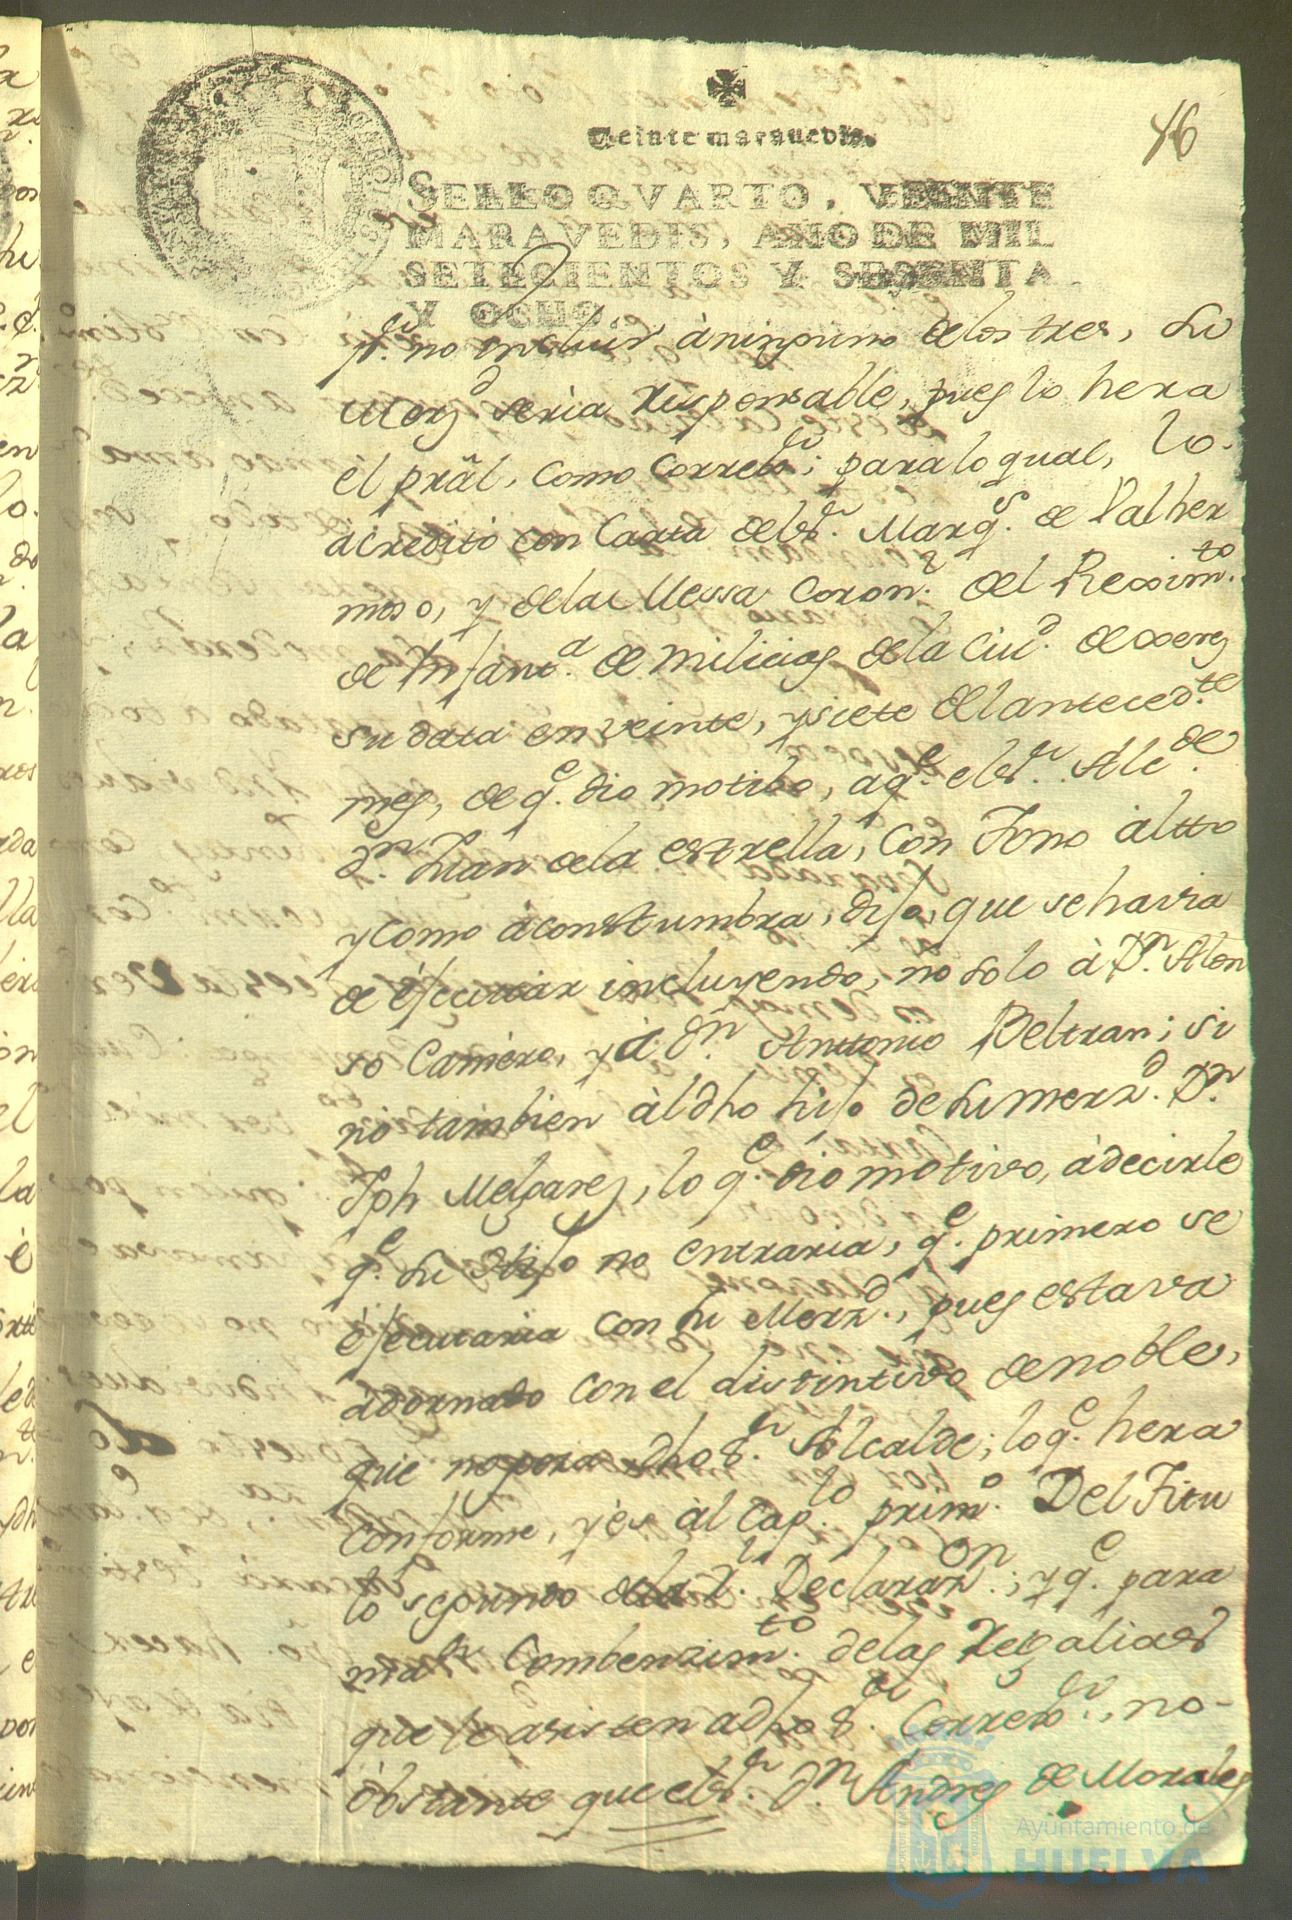 46
Veinte maravedis.
SELLO QVARTO, VEINTE
MARAVEDIS, AÑO DE MIL
SETECIENTOS Y SESENTA
Y OCHO.
pr. no incluir à ninguno delos tres, su
Merzd seria responsable, pues lo hera
el prãl, como Corregor; para lo qual, lo
acredito con Carta del Sr. Marqs. de Valher
moso, y dela Messa Coronl. del Reximto.
de Infanta. de Milicias dela Ciud. de Xerez
su data en veinte, y siete del antecedte
mes, de qe. dio motibo, a qe. el Sr. Alcde
Dn. Juan dela estrella, con Tono altto
y como àconstumbra, dijo, que se havia
de èjecutar incluyendo, no solo à Dn. Alon
so Camiero, y à Dn. Anttonio Beltran; si
no tambien àl dho hijo de su merzd. Dn.
Jph Melgarez, lo qe. dio motivo, à decirle
qe. su hijo no entraria, qe. primero se
èjecutaria con su Merzd., pues estava
adornado con el distintivo de noble,
que no goza dho Sr. Alcalde; lo qe. hera
conforme, y es àl Capto. primo. Del Titu
lo segundo dela Rl. Declarazon.; y qe. para
mas Combenzimto. delas Regalias
que le asisten a dho Sr. Corregor., no
òbstante que el Sr. Dn. Andres de Morales
Ayuntamiento de
HUELVA